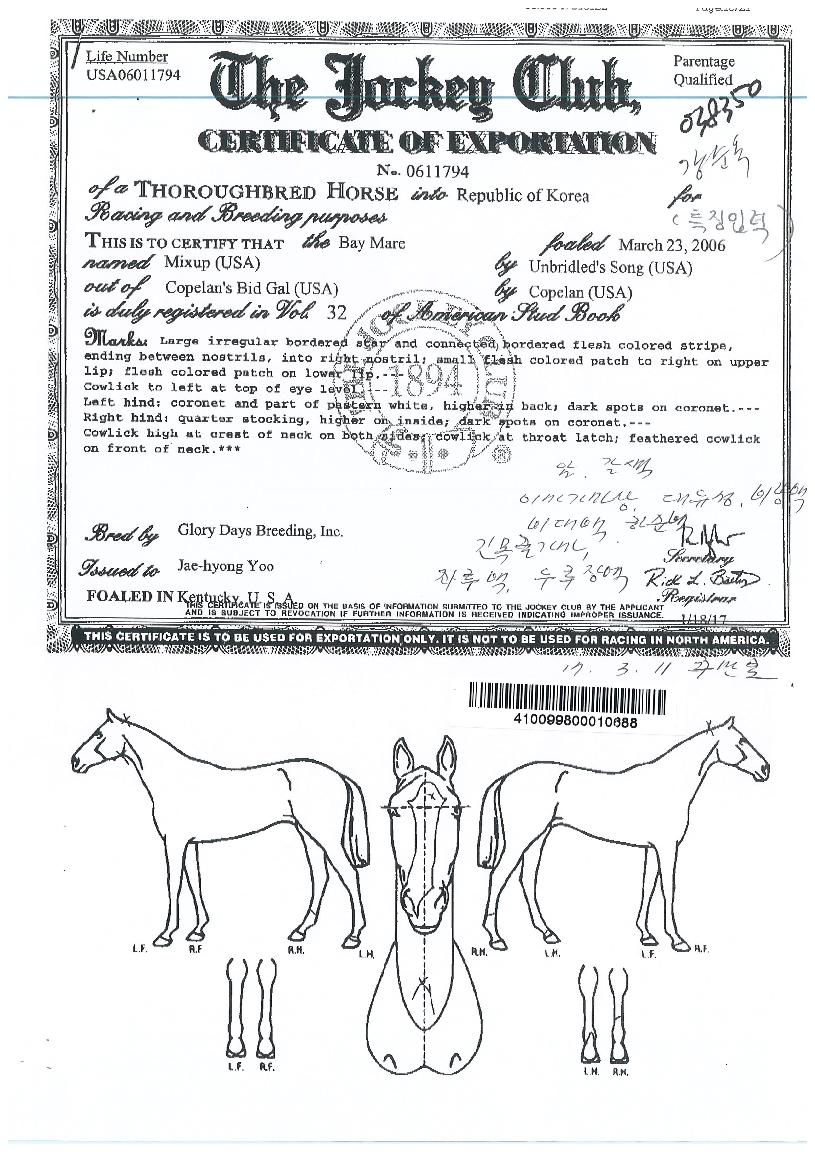 Life Number
USA06011794
The Jockey Club,
Parentage
Qualified
038350
CERTIFICATE OF EXPORTATION
No. 0611794
of a THOROUGHBRED HORSE into Republic of Korea for
Racing and Breeding purposes
(특징입력)
THIS IS TO CERTIFY THAT the Bay Mare foaled March 23, 2006
named Mixup (USA) by Unbridled's Song (USA)
out of Copelan's Bid Gal (USA) by Copelan (USA)
is duly registered in Vol. 32 of American Stud Book
Marks: Large irregular bordered star and connected, bordered flesh colored stripe,
ending between nostrils, into right nostril; small flesh colored patch to right on upper
lip; flesh colored patch on lower lip.---
Cowlick to left at top of eye level.---
Left hind: coronet and part of pastern white, higher in back; dark spots on coronet.---
Right hind: quarter stocking, higher on inside; dark spots on coronet.---
Cowlick high at crest of neck on both sides; cowlick at throat latch; feathered cowlick
on front of neck.***
1894
암. 갈색
Bred by Glory Days Breeding, Inc.
Secretary
Issued to Jae-hyong Yoo
Rick L. Bailey
Registrar
FOALED IN Kentucky, U. S. A.
THIS CERTIFICATE IS ISSUED ON THE BASIS OF INFORMATION SUBMITTED TO THE JOCKEY CLUB BY THE APPLICANT
AND IS SUBJECT TO REVOCATION IF FURTHER INFORMATION IS RECEIVED INDICATING IMPROPER ISSUANCE.
1/18/17
THIS CERTIFICATE IS TO BE USED FOR EXPORTATION ONLY. IT IS NOT TO BE USED FOR RACING IN NORTH AMERICA.
17. 3. 11
410099800010688
L.F. R.F. R.H. L.H. R.H. L.H. L.F. R.F.
L.F. R.F. L.H. R.H.